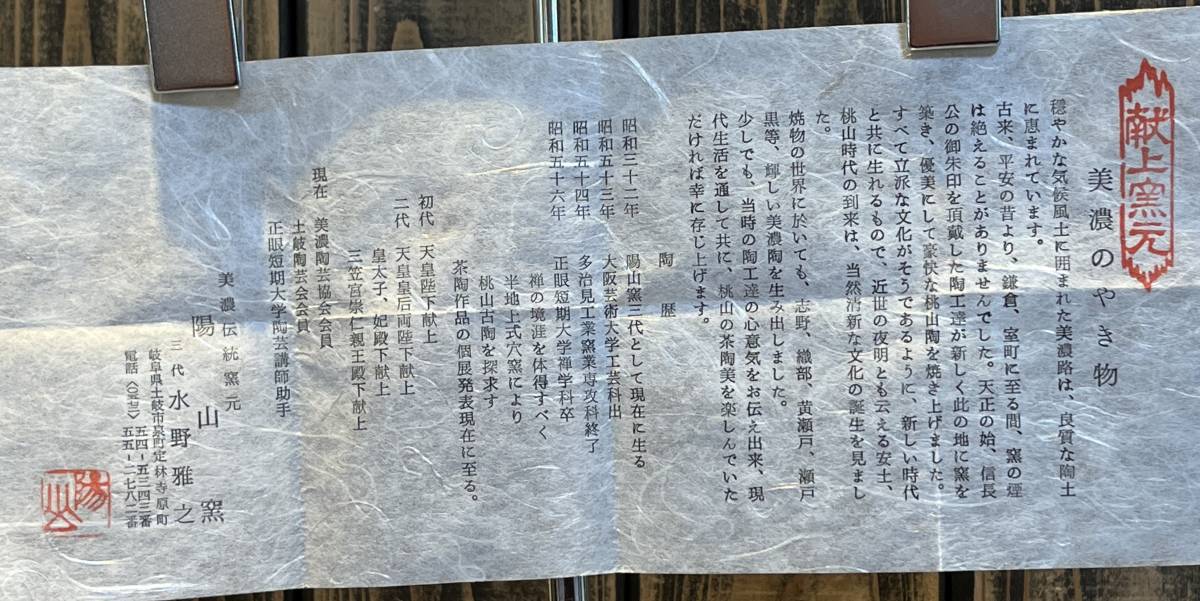 献上窯元
美濃のやき物
穏やかな気候風土に囲まれた美濃路は、良質な陶土
に恵まれています。
古来、平安の昔より、鎌倉、室町に至る間、窯の煙
は絶えることがありませんでした。天正の始、信長
公の御朱印を頂戴した陶工達が新しく此の地に窯を
築き、優美にして豪快な桃山陶を焼き上げました。
すべて立派な文化がそうであるように、新しい時代
と共に生れるもので、近世の夜明とも云える安土、
桃山時代の到来は、当然清新な文化の誕生を見まし
た。
焼物の世界に於いても、志野、織部、黄瀬戸、瀬戸
黒等、輝しい美濃陶を生み出しました。
少しでも、当時の陶工達の心意気をお伝え出来、現
代生活を通して共に、桃山の茶陶美を楽しんでいた
だければ幸に存じ上げます。
陶歴
昭和三十二年 陽山窯三代として現在に生る
昭和五十三年 大阪芸術大学工芸科出
昭和五十四年 多治見工業窯業専攻科終了
昭和五十六年 正眼短期大学禅学科卒
禅の境涯を体得すべく
半地上式穴窯により
桃山古陶を探求す
茶陶作品の個展発表現在に至る。
初代 天皇陛下献上
二代 天皇皇后両陛下献上
皇太子、妃殿下献上
三笠宮崇仁親王殿下献上
現在 美濃陶芸協会会員
土岐陶芸会会員
正眼短期大学陶芸講師助手
美濃伝統窯元
陽山窯
三代 水野雅之
岐阜県土岐市泉町定林寺原町
電話 五四-五三四三番
五五-二七八二番
陽山